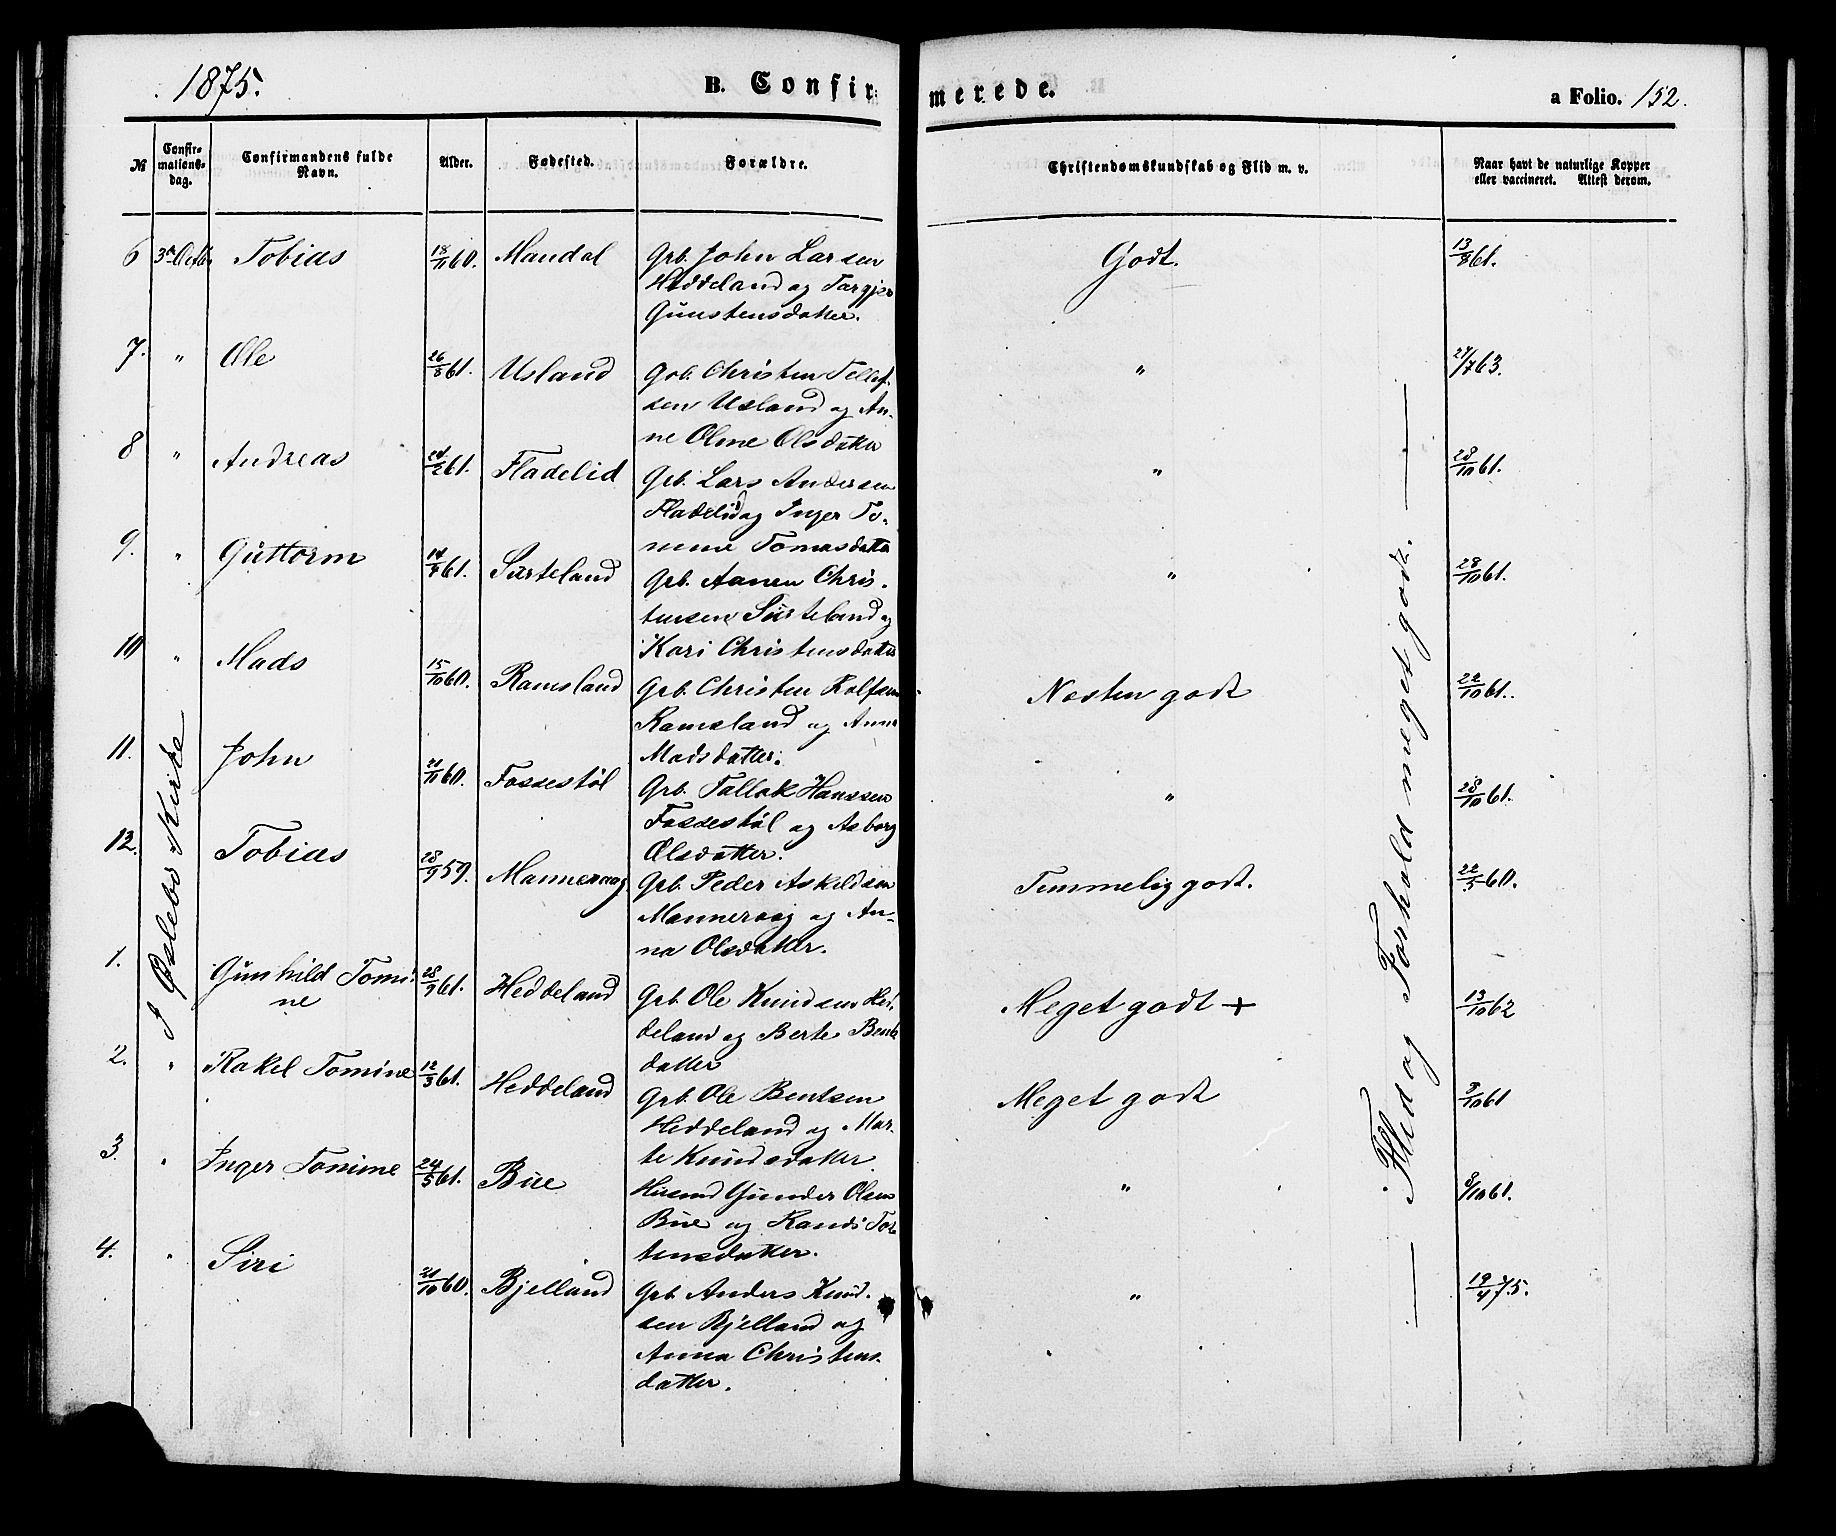 1875.
B. Confirmerede.
a Folio. 152.
№ Confirmationsdag. Confirmandens fulde Navn. Alder. Fødested. Forældre. Christendomskundskab og Flid m. v. Naar havt de naturlige Kopper eller vaccineret. Attest derom.
6 3die Octbr Tobias 18/11 60. Mandal Grb. John Larsen Godt. 13/8 61.
Heddeland og Targjer
Gunstensdatter.
7. " Ole 26/8 61. Usland Gob. Christen Tellef- " 24/7 63.
sen Usland og An-
ne Olme Olsdatter
8 " Andreas 24/2 61. Fladelid Grb. Lars Andersen " 28/10 61.
Fladelid og Inger To-
mine Tomasdatter
9. " Guttorm 14/4 61. Surteland Grb. Aanen Chris- " 28/10 61.
tensen Surteland og
Kari Christensdatter
10 " Mads 15/10 60. Ramsland Grb. Christen Rolfsen Næsten godt 22/10 61.
Ramsland og Anne
Madsdatter.
11. John 21/11 60. Fossestøl Grb. Tallak Hanssen " 28/10 61.
Fossestøl og Asborg
Olsdatter.
12. Tobias 28/9 59. Mannevaag Grb. Peder Askildsen Temmelig godt. 22/5 60.
Mannevaag og An-
na Olsdatter.
1. Gunhild Tomi- 28/9 61. Heddeland Grb. Ole Knudsen Hed- Meget godt + 13/10 62
ne
deland og Berte Bents
datter
2. " Rakel Tomine 12/3 61. Heddeland Grb. Ole Bentsen Meget godt 8/10 61
Heddeland og Mar-
te Knudsdatter
3. " Inger Tomine 24/5 61. Bue Husmd Gunder Olsen " 8/10 61.
Bue og Randi Tor-
tensdatter.
4. " Siri 21/10 60. Bjelland Grb. Anders Knud- " 19/4 75.
sen Bjelland og
Anna Christens-
datter.
I Øslebø Kirke
— Flid og Forhold meget godt. —